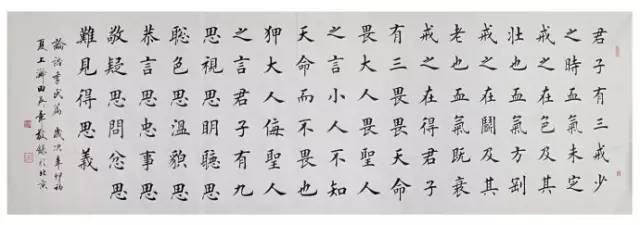 君子有三戒少
之時血氣未定
戒之在色及其
壯也血氣方剛
戒之在鬭及其
老也血氣既衰
戒之在得君子
有三畏畏天命
畏大人畏聖人
之言小人不知
天命而不畏也
狎大人侮聖人
之言君子有九
思視思明聽思
聰色思溫貌思
恭言思忠事思
敬疑思問忿思
難見得思義
論語季氏篇歲次辛卯初
夏上澣田敬錄於北京